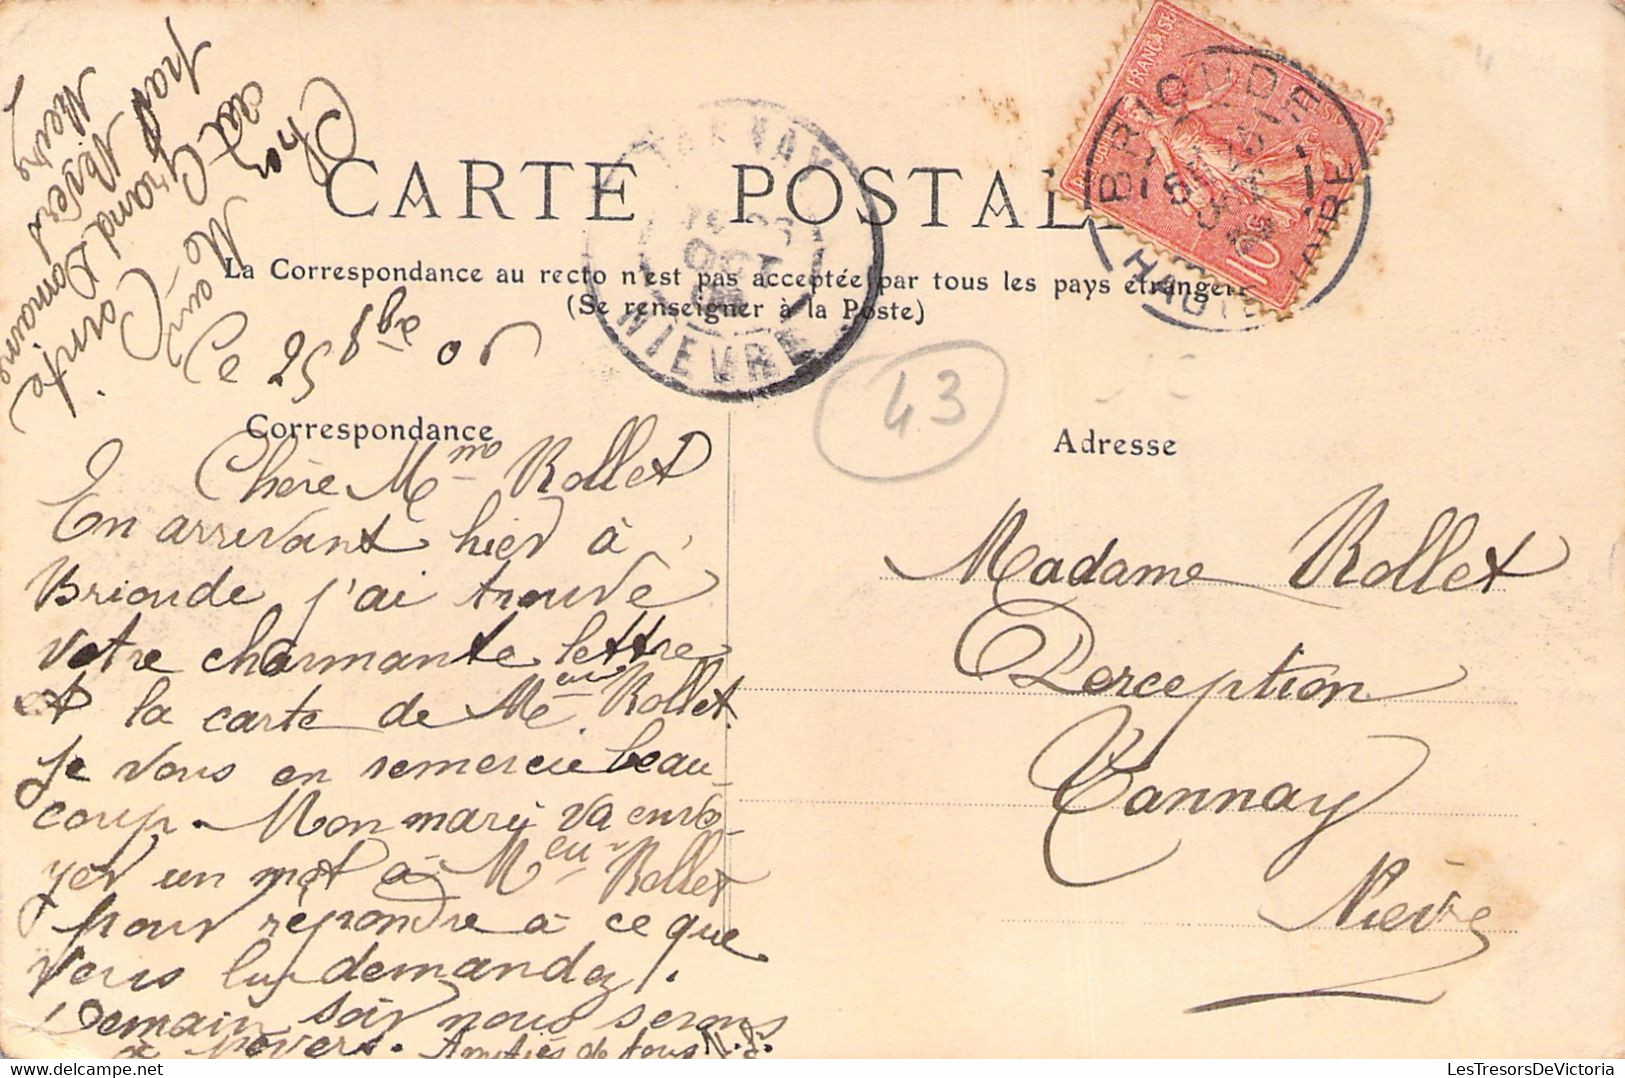 CARTE POSTALE
La Correspondance au recto n'est pas acceptée par tous les pays étrangers
(Se renseigner à la Poste)
Chez
Mr Comte
au Grand Domaine
par Nevers
Nièvre
Ce 25 8bre 06
Correspondance
Chère Mme Rollet
En arrivant hier à
Brioude j'ai trouvé
votre charmante lettre
et la carte de Meur Rollet.
Je vous en remercie beau-
coup. Mon mari va envo-
yer un mot à Meur Rollet
pour répondre à ce que
vous lui demandez.
Demain soir nous serons
à Nevers. Amitiés de tous
43
Adresse
Madame Rollet
Perception
Tannay
Nièvre
FRANÇAISE
10
BRIOUDE
HAUTE LOIRE
TANNAY
OCT
NIEVRE
LesTresorsDeVictoria